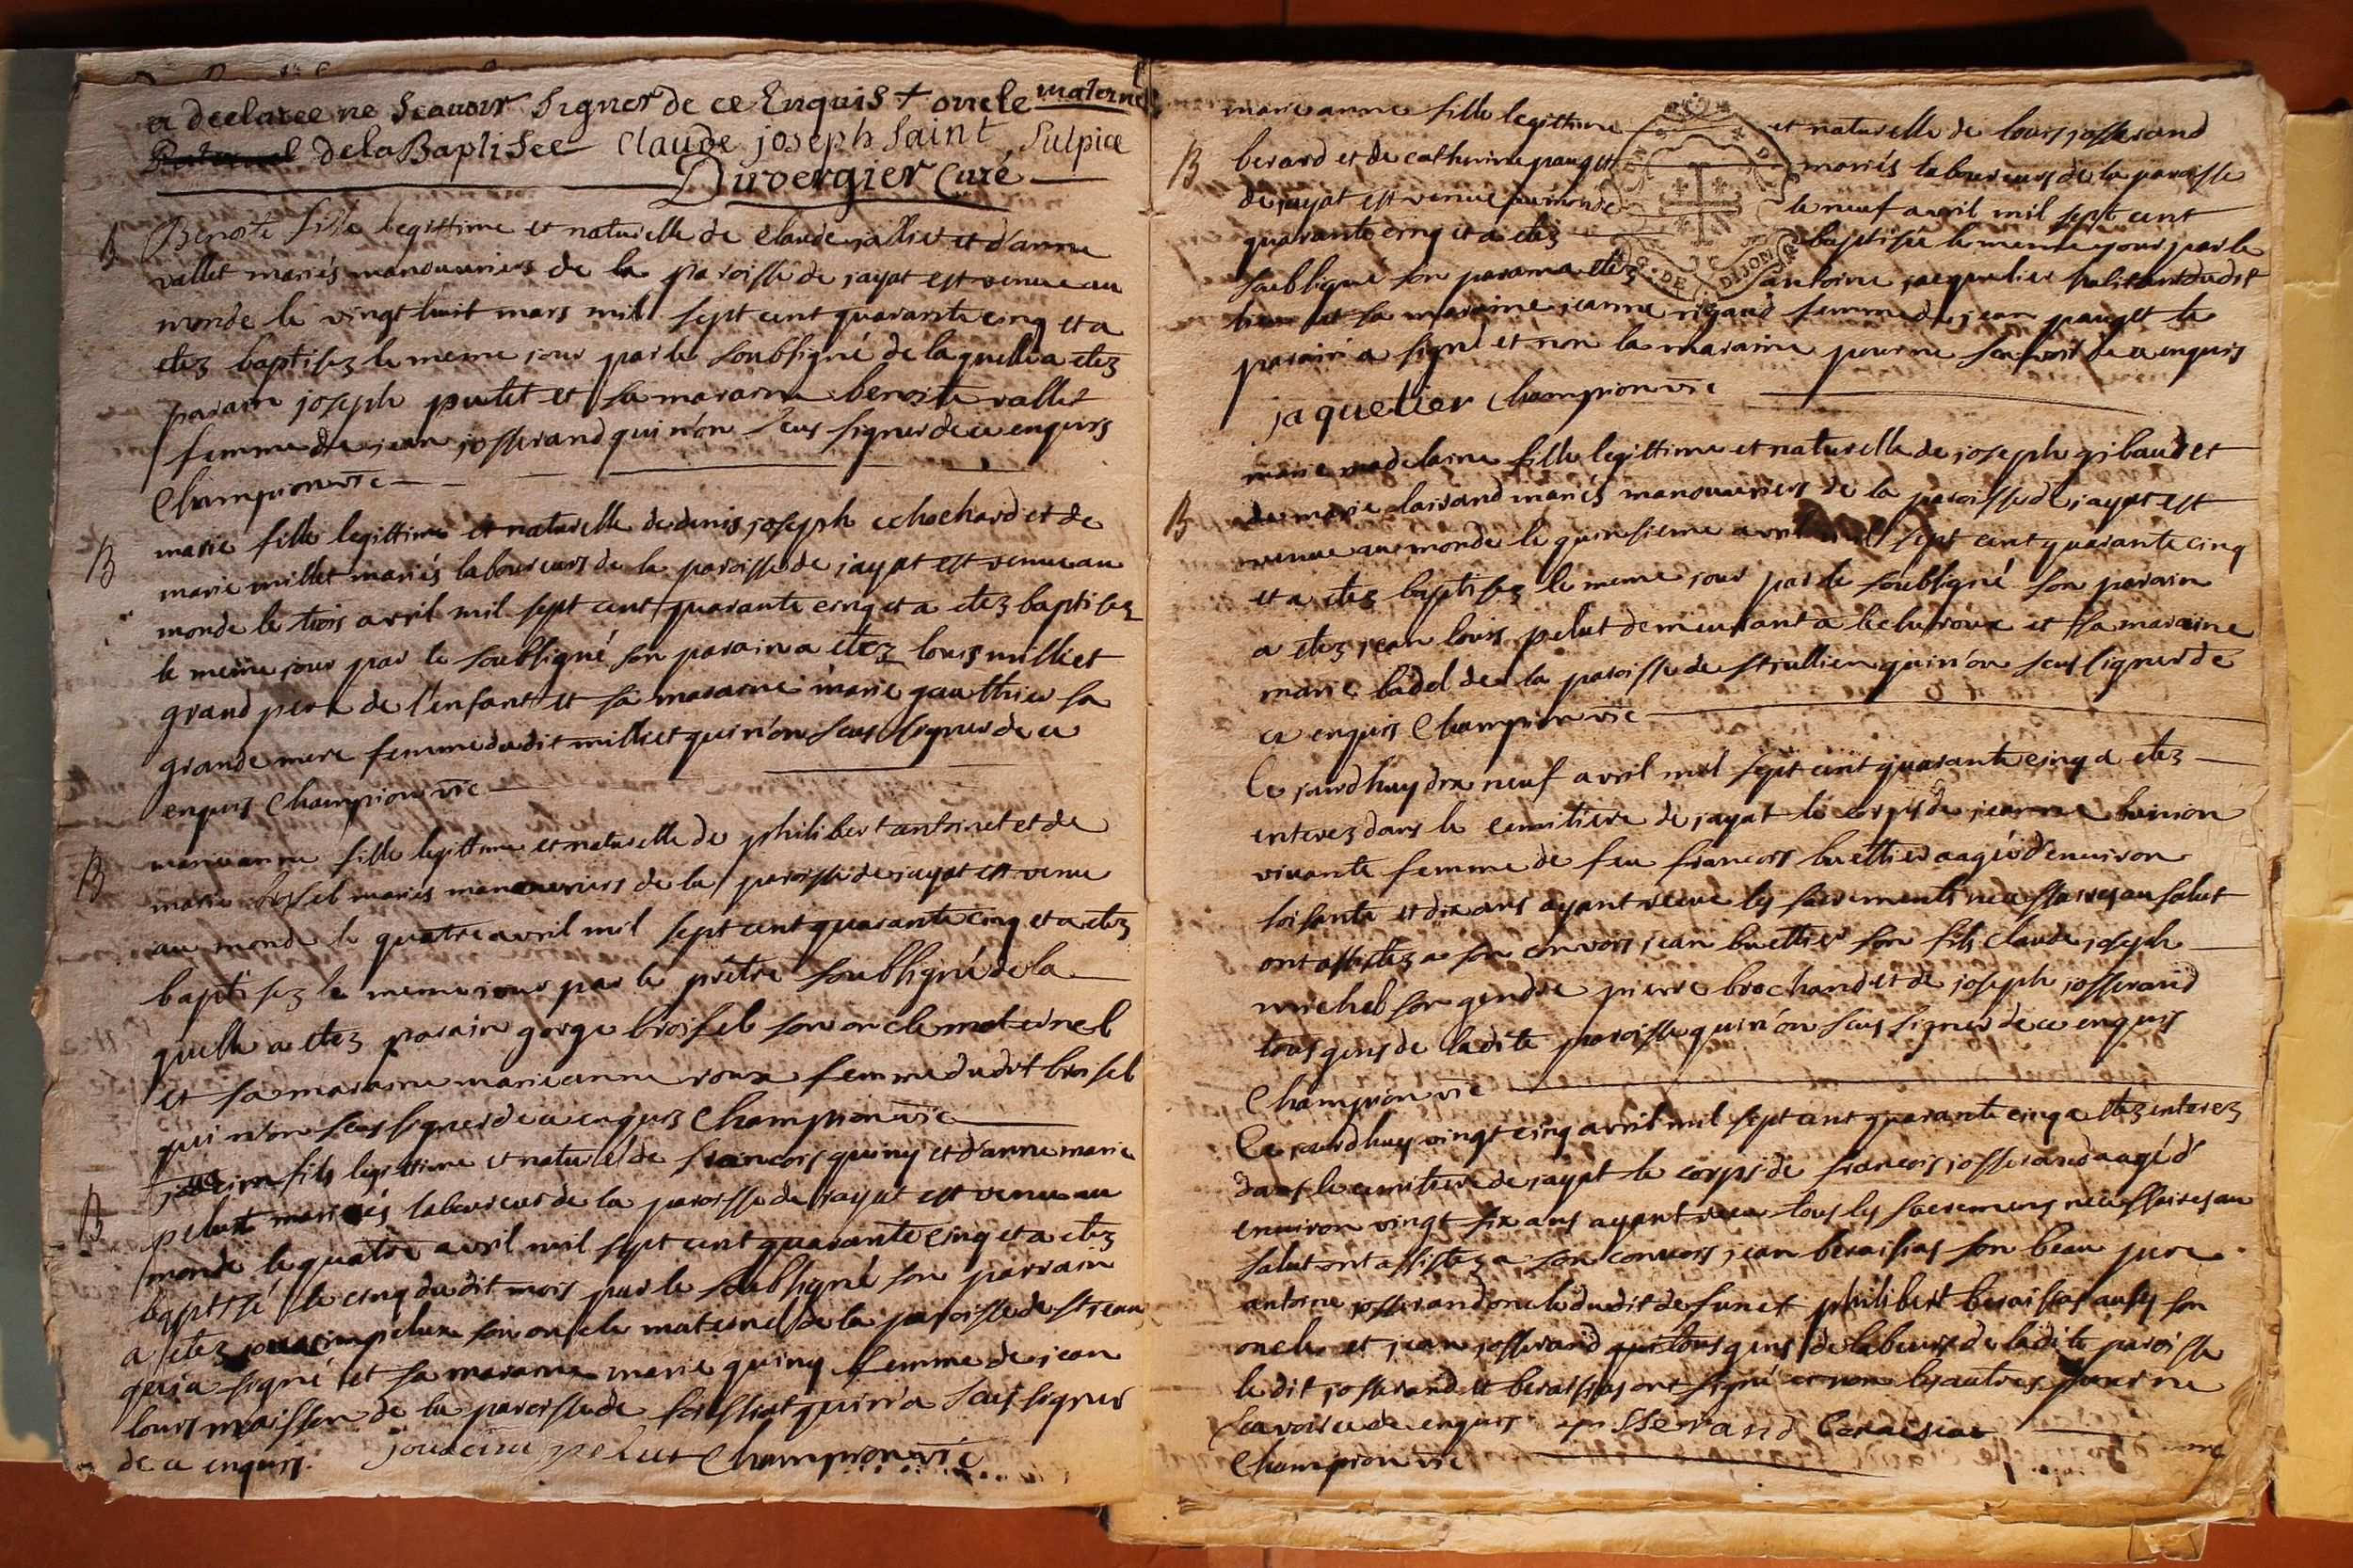 a declaree ne Scauoir Signer de ce Enquis + oncle maternel
Paternel de la Baptisee Claude joseph Saint Sulpice
Duvergier Curé
B Benoite fille legittime et naturelle de Claude jallier et d'anne
vallet mariés manouuriers de la paroisse de jayat est venue au
monde le vingt huit mars mil sept cent quarante cinq et a
etez baptisez le meme jour par le soubsigné de laquelle a etez
parain joseph putet et sa maraine benoite vallet
femme de jean josserand qui n'on seus signer de ce enquis
Champion vic
B marie fille legittime et naturelle de denis joseph cchochard et de
marie millet mariés laboureurs de la paroisse de jayat est venue au
monde le trois avril mil sept cent quarante cinq et a etez baptisez
le meme jour par le soubsigné son parain a etez louis milliet
grand pere de l'enfant et sa maraine marie gauthier sa
grande mere femme dudit milliet qui n'on seus signer de ce
enquis Champion vic
B marie anne fille legittime et naturelle de philibert antoinet et de
marie broisel mariés manouuriers de la paroisse de jayat est venue
au monde le quatre avril mil sept cent quarante cinq et a etez
baptisez le meme jour par le prêtre soubsigné de la
quelle a etez parain gorge broisel son oncle maternel
et sa maraine marie anne roux femme dudit broisel
qui n'on seus signer de ce enquis Champion vic
B fils legittime et naturel de francois quiny et d'anne marie
pelut mariés laboureur de la paroisse de jayat est venu au
monde le quatre avril mil sept cent quarante cinq et a etez
baptisé le cinq dudit mois par le soubsigné son parrain
a etez jouacim pelux son oncle maternel de la paroisse de st jean
qui a signé et sa maraine marie quiny femme de jean
louis maisson de la paroisse de foissiat qui n'a seus signer
de ce enquis. jouacim pelut Champion vic
marie anne fille legittime et naturelle de louis josserand
B berard et de catherine pauget mariés laboureurs de la paroisse
de jayat est venue au monde le neuf avril mil sept cent
quarante cinq et a etez baptisée le meme jour par le
soubsigné son parain a etez antoine jacquelier habitant dudit
lieu et sa maraine jeanne rigaud femme de jean pauget le
parain a signé et non la maraine pour ne scavoir de ce enquis
jaquelier Champion vic
G. DE DIJON
marie madelaine fille legittime et naturelle de joseph gibaud et
B de marie lairand mariés manouuriers de la paroisse de jayat est
venue au monde le quinsieme avril mil sept cent quarante cinq
et a etez baptisez le meme jour par le soubsigné son parain
a etez jean louis pelut demeurant a lecheroux et sa maraine
marie badel de la paroisse de st jullien qui n'on seus signer de
ce enquis Champion vic
Ce jourdhuy dix neuf avril mil sept cent quarante cinq a etez
enterez dans le cemitiere de jayat le corps de jeanne buinion
vivante femme de feu francois buettier aagée d'enuiron
soisante et dix ans ayant receue les sacrements necessaires au salut
ont assistez a son convois jean buettier son fils Claude joseph
michel son gendre pierre brochand et de joseph josserand
tous gens de ladite paroisse qui n'on seus signer de ce enquis
Champion vic
Ce jourdhuy vingt cinq avril mil sept cent quarante cinq a etez enterez
dans le cemitiere de jayat le corps de francois josserand aagé d'
enuiron vingt six ans ayant receu tous les sacremens necessaires au
salut ont assistez a son convois jean beraisias son beau pere
antoine josserand oncle dudit defunct philibert beraisias aussy son
oncle et jean josserand tous gens de labeurs de ladite paroisse
le dit josserand et beraisias ont signé et non les autres pour ne
scavoir de ce enquis josserand Beraisiat
Champion vic